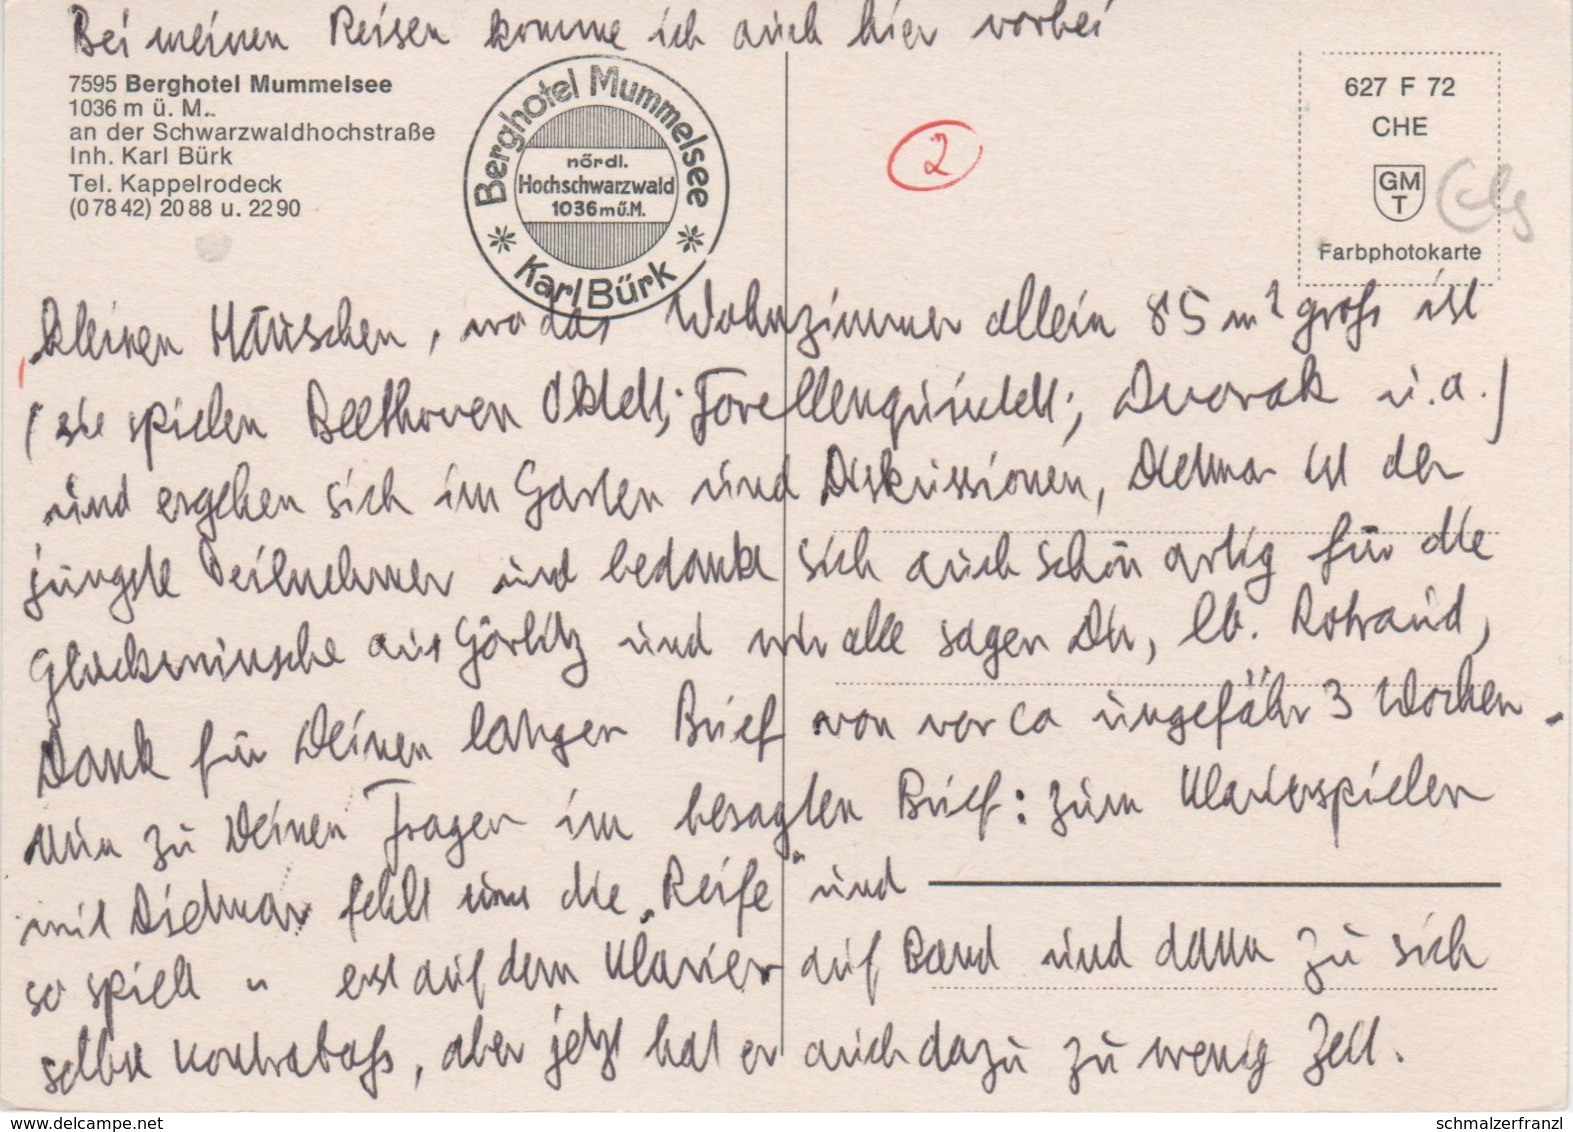 Bei meinen Reisen komme ich auch hier vorbei
7595 Berghotel Mummelsee
1036 m ü. M.
an der Schwarzwaldhochstraße
Inh. Karl Bürk
Tel. Kappelrodeck
(0 78 42) 20 88 u. 22 90
Berghotel Mummelsee
nördl.
Hochschwarzwald
1036 m ü.M.
* Karl Bürk *
2
627 F 72
CHE
GM
T
Farbphotokarte
kleinen Häuschen, wo das Wohnzimmer allein 85 m² groß ist
(sie spielen Beethoven Oktett; Forellenquintett; Dvorak u.a.)
und ergehen sich im Garten und Diskussionen, Dietmar ist der
jüngste Teilnehmer und bedankt sich auch schön artig für die
Glückwünsche aus Görlitz und wir alle sagen Dir, lb. Rotraud,
Dank für Deinen langen Brief von vor ca ungefähr 3 Wochen.
Nun zu Deinen Fragen im besagten Brief: zum Klavierspielen
mit Dietmar fehlt uns die "Reife" und
so spielt er erst auf dem Klavier auf Band und dann zu sich
selbst Kontrabaß, aber jetzt hat er auch dazu zu wenig Zeit.
schmalzerfranzl
www.delcampe.net